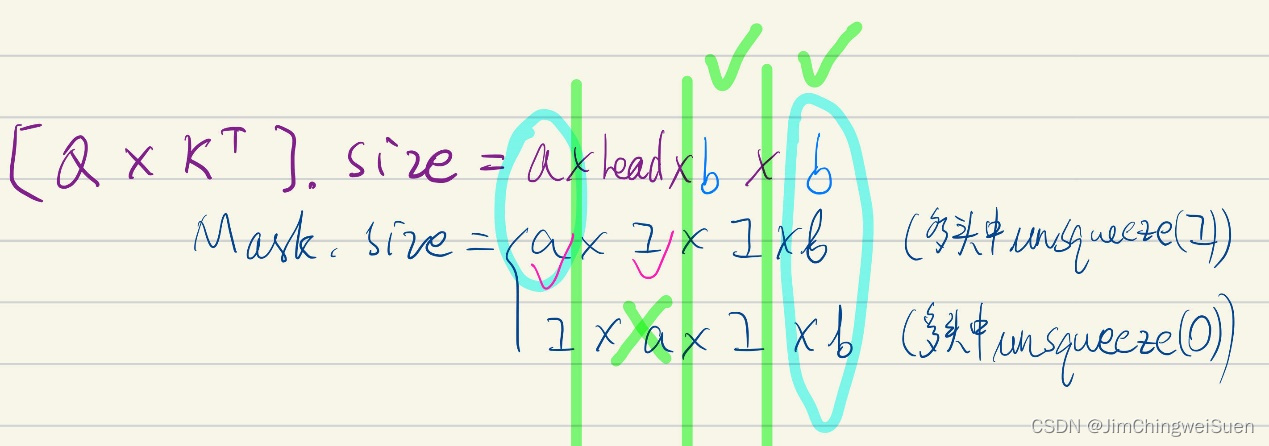 [Q × Kᵀ]. size = a × head × b × b
Mask. size = { a × 1 × 1 × b (多头中unsqueeze(1))
1 × a × 1 × b (多头中unsqueeze(0))
CSDN @JimChingweiSuen